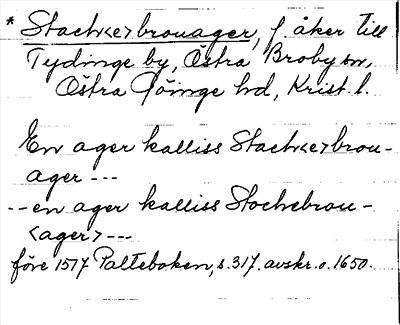 * Stack<e>brouager, f. åker till
Tydinge by, Östra Broby sn,
Östra Göinge hd, Krist. l.
En ager kalliss Stack<e>brou-
ager ---
-- en ager kalliss Stochebrou-
<ager> ---
före 1577 Palteboken, s. 317. avskr. o. 1650.